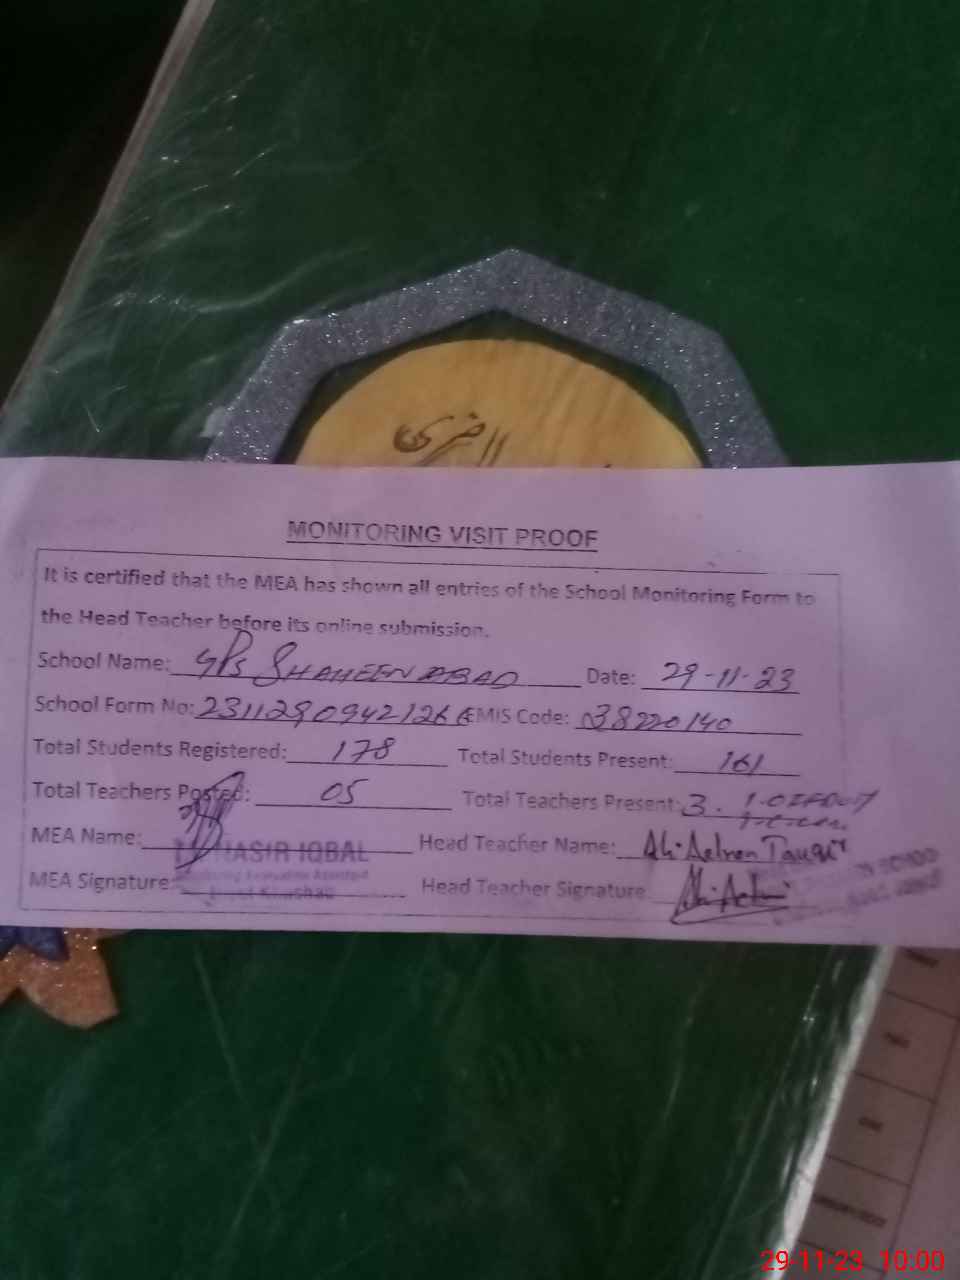 الرضی
MONITORING VISIT PROOF
It is certified that the MEA has shown all entries of the School Monitoring Form to
the Head Teacher before its online submission.
School Name: GPS SHAHEEN ABAD Date: 29-11-23
School Form No: 23112909421266 EMIS Code: 38220140
Total Students Registered: 178 Total Students Present: 161
Total Teachers Posted: 05 Total Teachers Present: 3.
MEA Name: IQBAL Head Teacher Name:
MEA Signature: Head Teacher Signature
29-11-23 10:00